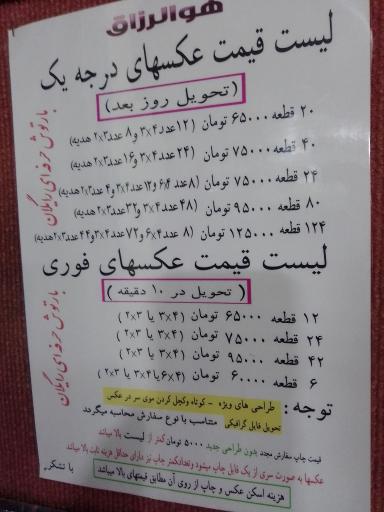 هوالرزاق
لیست قیمت عکسهای درجه یک
(تحویل روز بعد)
۲۰ قطعه ۶۵۰۰۰ تومان (۱۲عدد۳x۴ و۸ عدد۲x۳ هدیه)
۴۰ قطعه ۷۵۰۰۰ تومان (۲۴عدد۳x۴ و۱۶عدد۲x۳ هدیه)
۲۴ قطعه ۷۵۰۰۰ تومان (۸عدد ۶x۴ و۱۲عدد۳x۴ و۴عدد۲x۳ هدیه)
۸۰ قطعه ۹۵۰۰۰ تومان (۴۸عدد۳x۴ و۳۲عدد۲x۳هدیه)
۱۲۴ قطعه ۱۲۵۰۰۰ تومان (۸ عدد۶x۴ و۷۲عدد۳x۴و۴۴عدد۲x۳هدیه)
بارتوش حرفه ای رایگان
لیست قیمت عکسهای فوری
( تحویل در ۱۰ دقیقه )
۱۲ قطعه ۶۵۰۰۰ تومان (۳x۴ یا ۲x۳ )
۲۴ قطعه ۷۵۰۰۰ تومان (۳x۴ یا ۲x۳ )
۴۲ قطعه ۹۵۰۰۰ تومان (۳x۴ یا ۲x۳ )
۶ قطعه ۶۰۰۰۰ تومان (۶x۴یا۳x۴ یا ۲x۳ )
بارتوش حرفه ای رایگان
توجه : طراحی های ویژه - کوتاه وکچل کردن موی سر در عکس
تحویل فایل گرافیکی متناسب با نوع سفارش محاسبه میگردد
قیمت چاپ سفارش مجدد بدون طراحی جدید ۵۰۰۰ تومان کمتر از لیست بالا میباشد
عکسها به صورت سری از یک فایل چاپ میشود وتعدادکمتر چاپ نیز دارای حداقل هزینه ثابت بالا میباشد
هزینه اسکن عکس و چاپ از روی آن مطابق قیمتهای بالا میباشد
با تشکر